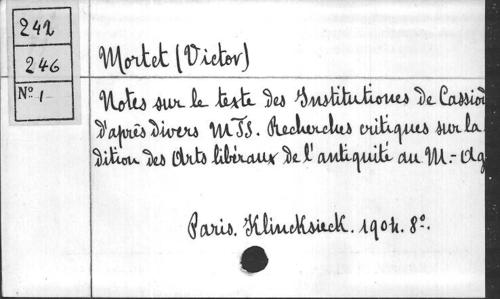 242
246
Nº 1
Mortet (Victor)
Notes sur le texte des Institutiones de Cassiod
d'après divers MSS. Recherches critiques sur la
dition des Arts libéraux de l'antiquité au M.-Ag
Paris. Klincksieck. 1904. 8º.